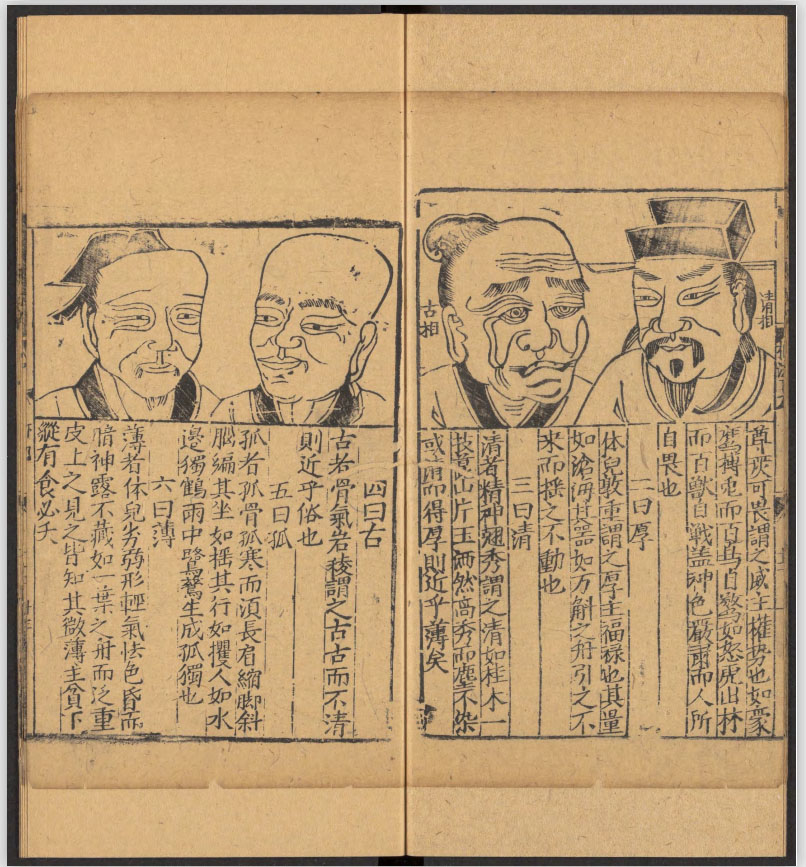 清相
古相
尊嚴可畏謂之威主權勢也如豪
鷹搏兎而百鳥自驚如怒虎出林
而百獸自戰盖神色嚴肅而人所
自畏也
二曰厚
体皃敦重謂之厚主福祿也其量
如滄海其器如万斛之舟引之不
來而揺之不動也
三曰清
清者精神翹秀謂之清如桂木一
枝崑山片玉洒然高秀而塵不染
或清而得厚則近乎薄矣
四曰古
古者骨氣岩稜謂之古古而不清
則近乎俗也
五曰孤
孤者孤骨孤寒而項長肩縮脚斜
腦偏其坐如揺其行如攫人如水
邊獨鶴雨中鷺鷥生成孤獨也
六曰薄
薄者体皃劣弱形輕氣怯色昏而
暗神露不藏如一葉之舟而泛重
皮上之見之皆知其微薄主貧下
縱有食必夭